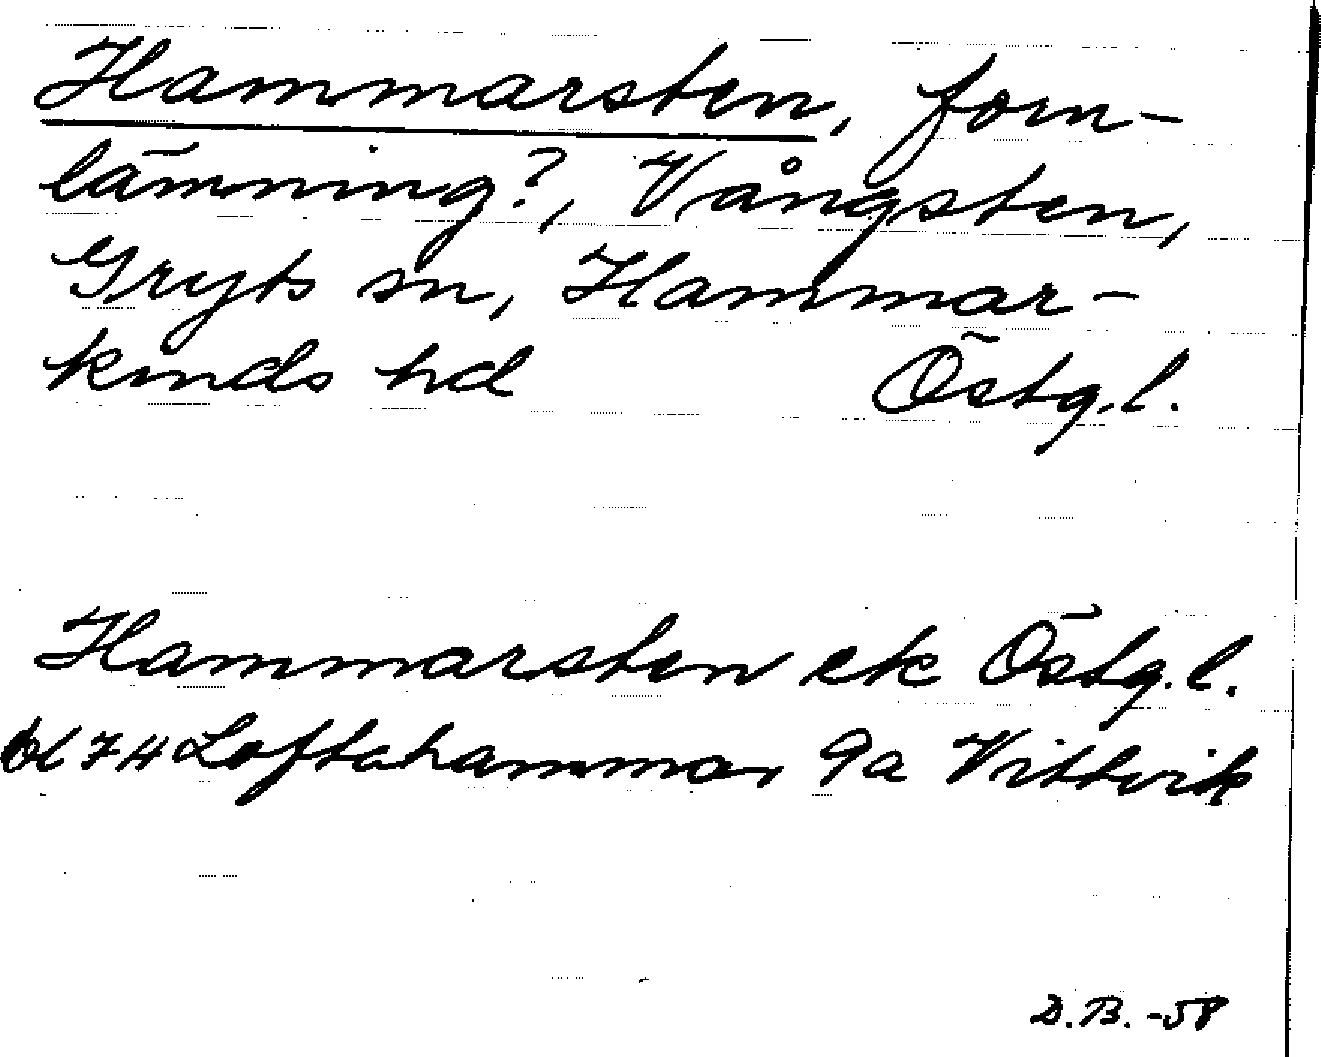 Hammarsten, forn-
lämning?, Vångsten,
Gryts sn, Hammar-
kinds hd Östg.l.
Hammarsten ek Östg.l.
bl 74 Loftahammar 9a Vittvik
D.B. -58